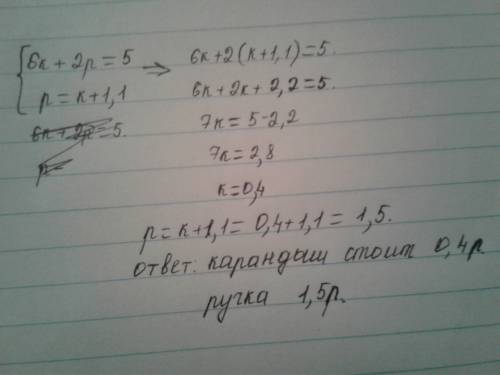 6к + 2р = 5 => 6к + 2(к+1,1) = 5.
р = к+1,1
6к + 2к + 2,2 = 5.
6к + 2р = 5.
7к = 5 - 2,2
р=
7к = 2,8
к = 0,4
р = к+1,1 = 0,4+1,1 = 1,5.
ответ: карандыш стоит 0,4р
ручка 1,5р.